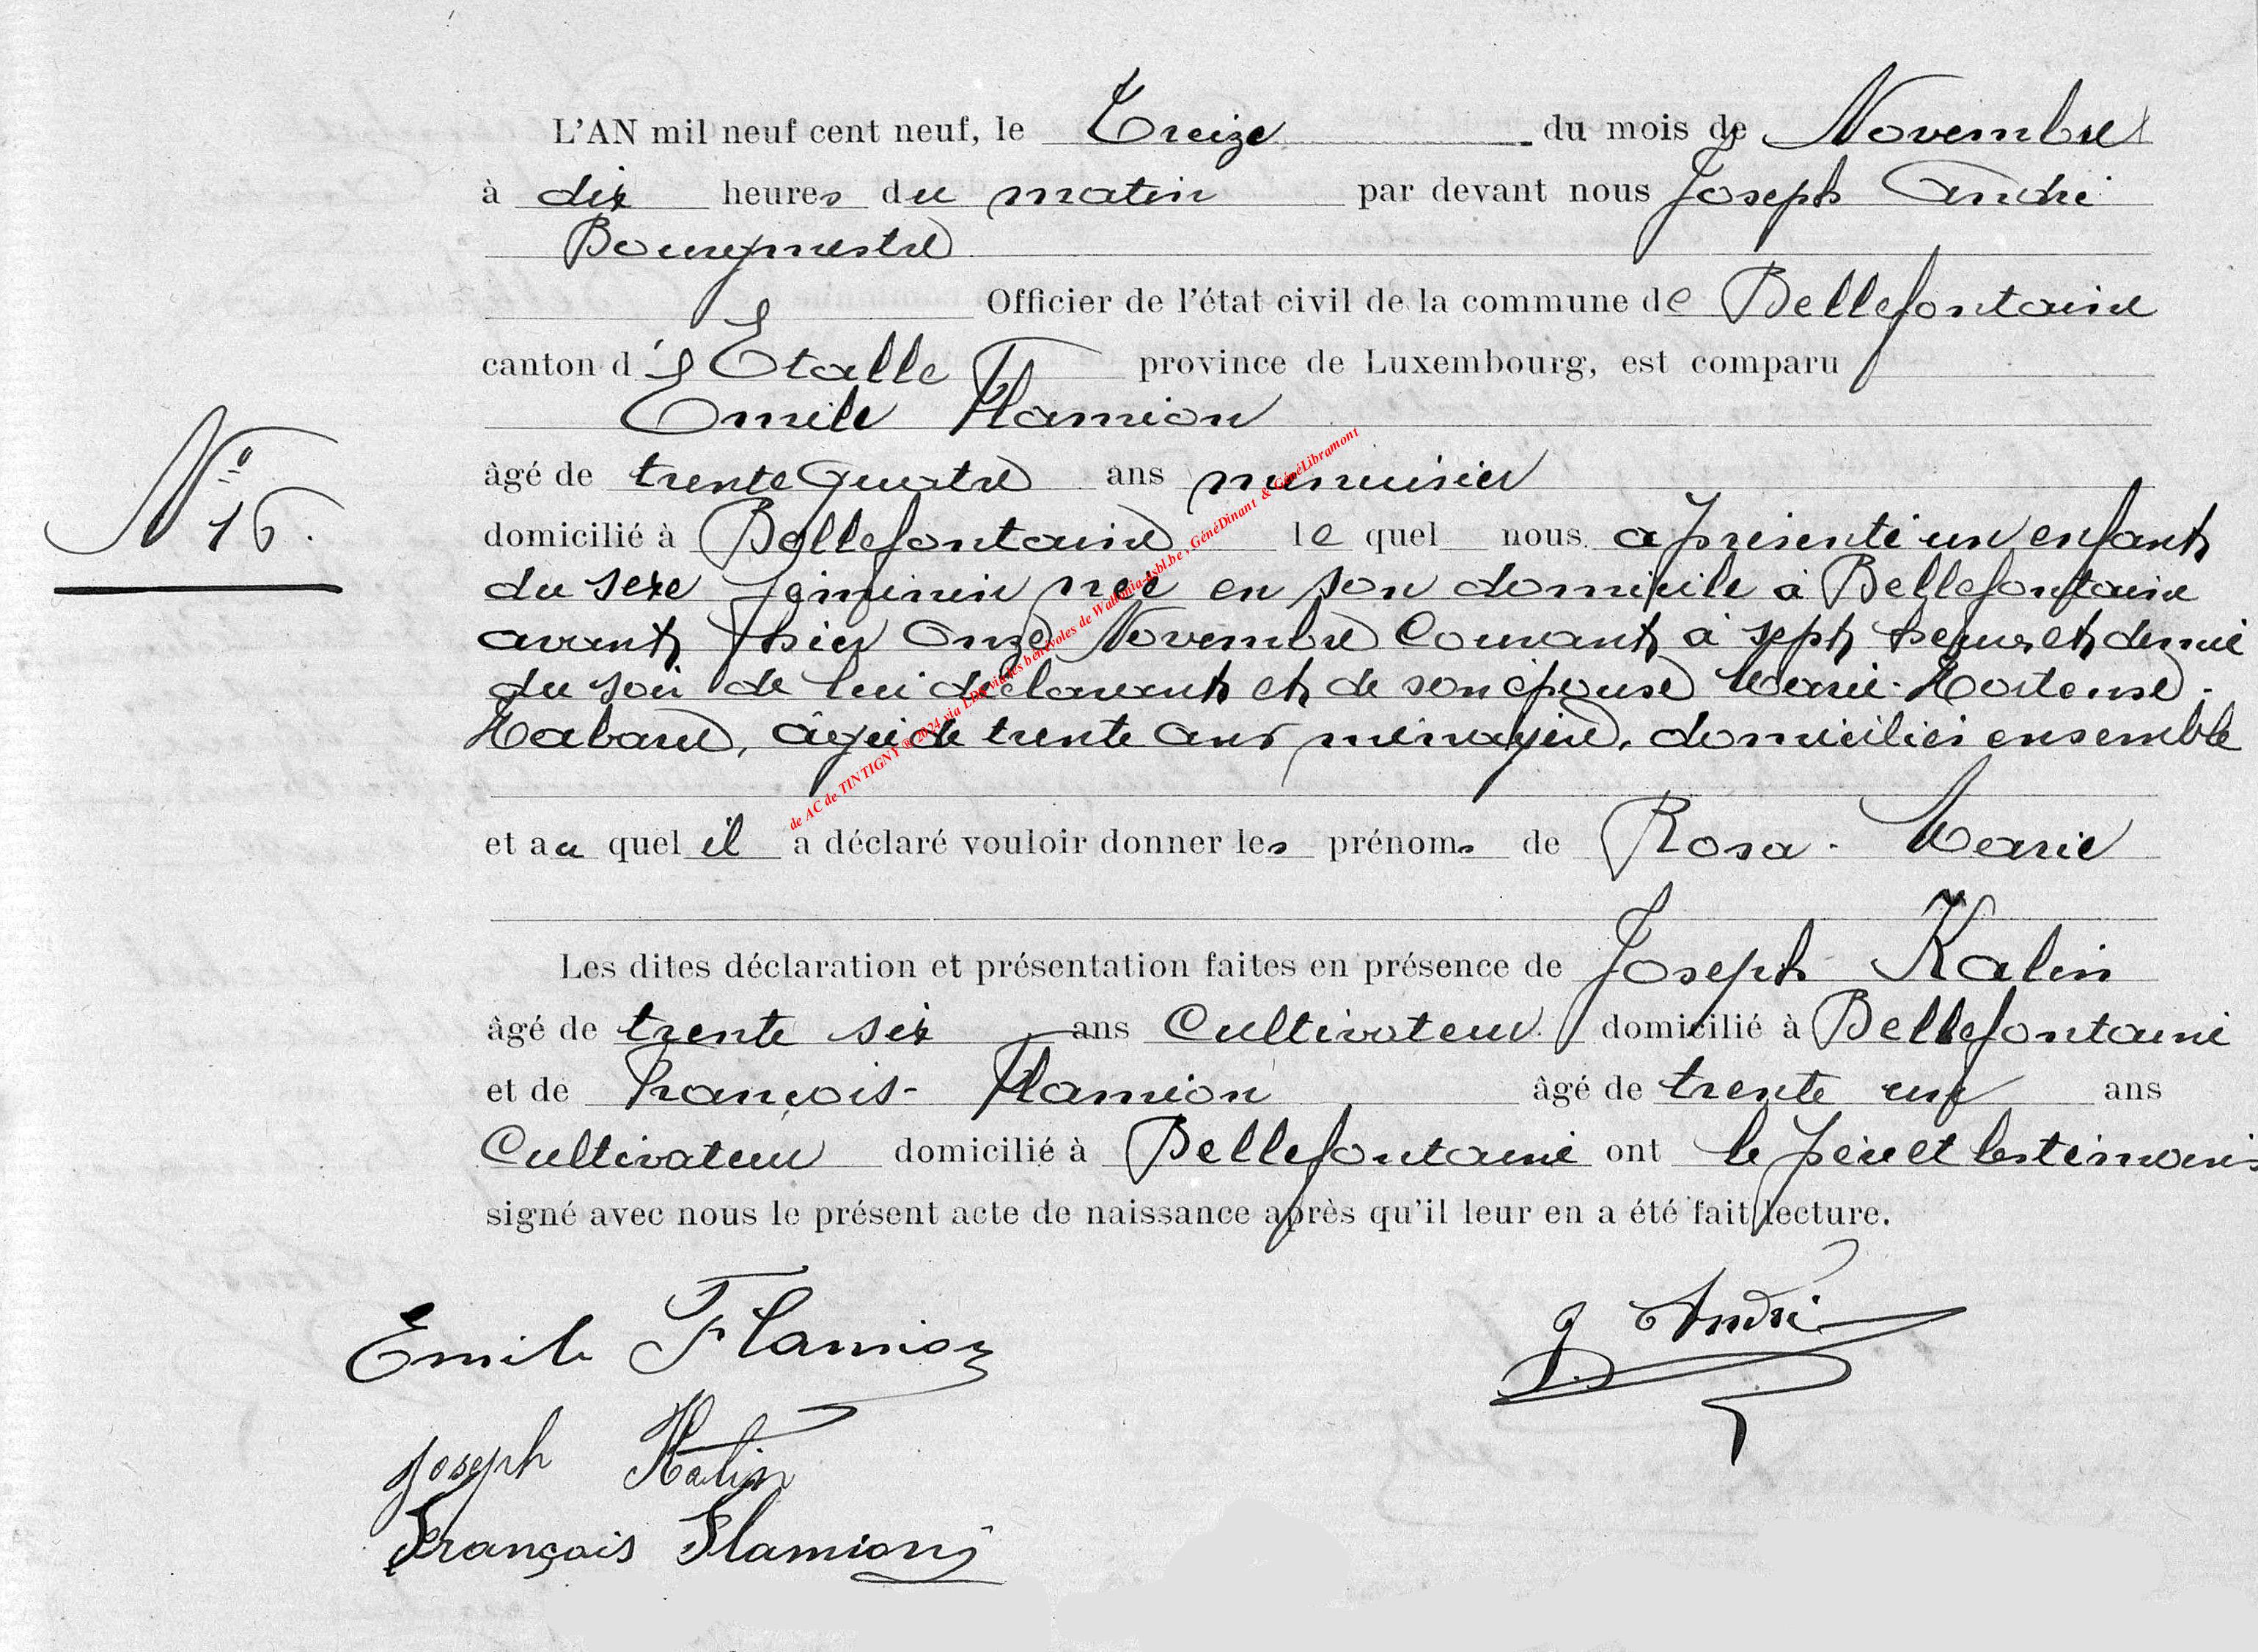 L'AN mil neuf cent neuf, le Treize du mois de Novembre
à dix heures du matin par devant nous Joseph André
Bourgmestre
Officier de l'état civil de la commune de Bellefontaine
canton d'Etalle province de Luxembourg, est comparu
Emile Flamion
N° 16.
âgé de trente quatre ans menuisier
domicilié à Bellefontaine le quel nous a présenté un enfant
du sexe féminin née en son domicile à Bellefontaine
avant hier onze Novembre Courant à sept heures et demie
du soir de lui déclarant et de son épouse Marie-Hortense
Habard, âgée de trente ans ménagère, domiciliés ensemble
et au quel il a déclaré vouloir donner les prénoms de Rosa-Marie
Les dites déclaration et présentation faites en présence de Joseph Kalin
âgé de trente six ans Cultivateur domicilié à Bellefontaine
et de François-Flamion âgé de trente un ans
Cultivateur domicilié à Bellefontaine ont le père et les témoins
signé avec nous le présent acte de naissance après qu'il leur en a été fait lecture.
Emile Flamion
J. André
Joseph Kalin
François Flamion
de AC de TINTIGNY ® 2024 via LDS via les bénévoles de Wallonia-asbl.be , GénéDinant & GénéLibramont